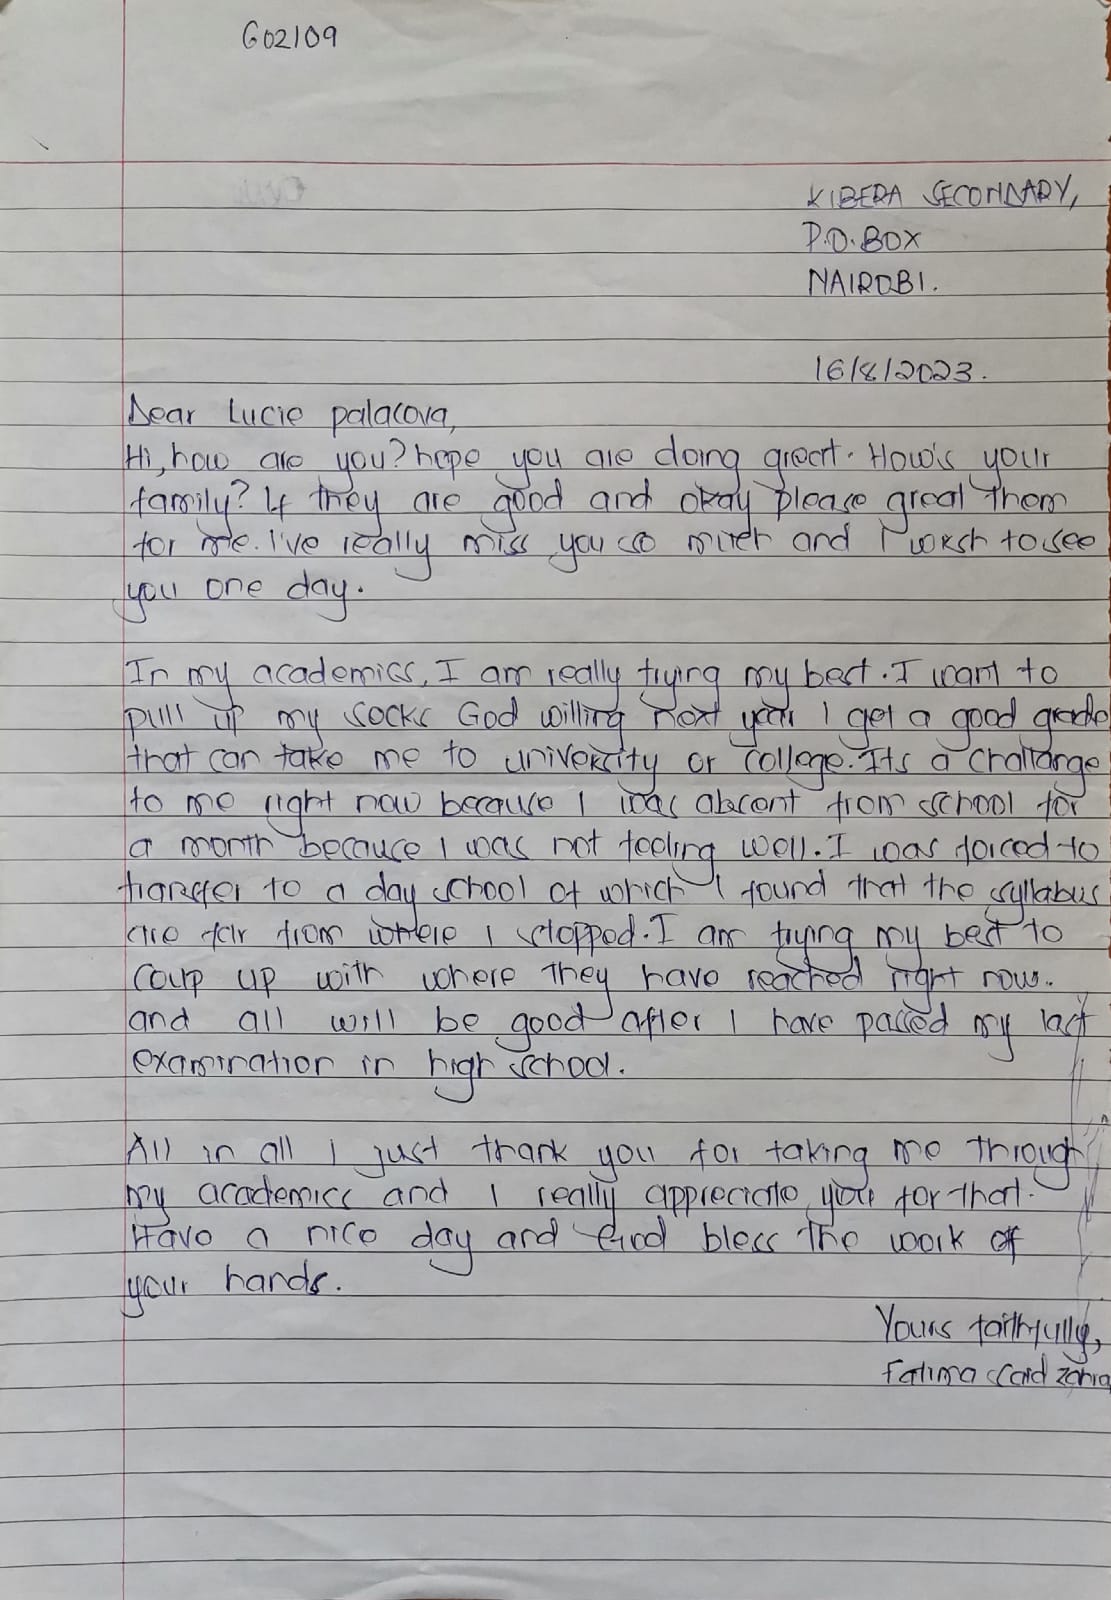 G02109
KIBERA SECONDARY,
P.O.BOX
NAIROBI.
16/8/2023.
Dear Lucie palacova,
Hi, how are you? hope you are doing great. How's your
family? If they are good and okay please great them
for me. I've really miss you so much and I wish to see
you one day.
In my academics, I am really trying my best. I want to
pull up my socks God willing next year I get a good grade
that can take me to university or college. Its a challange
to me right now because I was absent from school for
a month because I was not feeling well. I was forced to
transfer to a day school of which I found that the syllabus
are far from where I stopped. I am trying my best to
coup up with where they have reached right now.
and all will be good after I have passed my last
examination in high school.
All in all I just thank you for taking me through
my academics and I really appreciate you for that.
Have a nice day and God bless the work of
your hands.
Yours faithfully,
Fatima Said Zahra